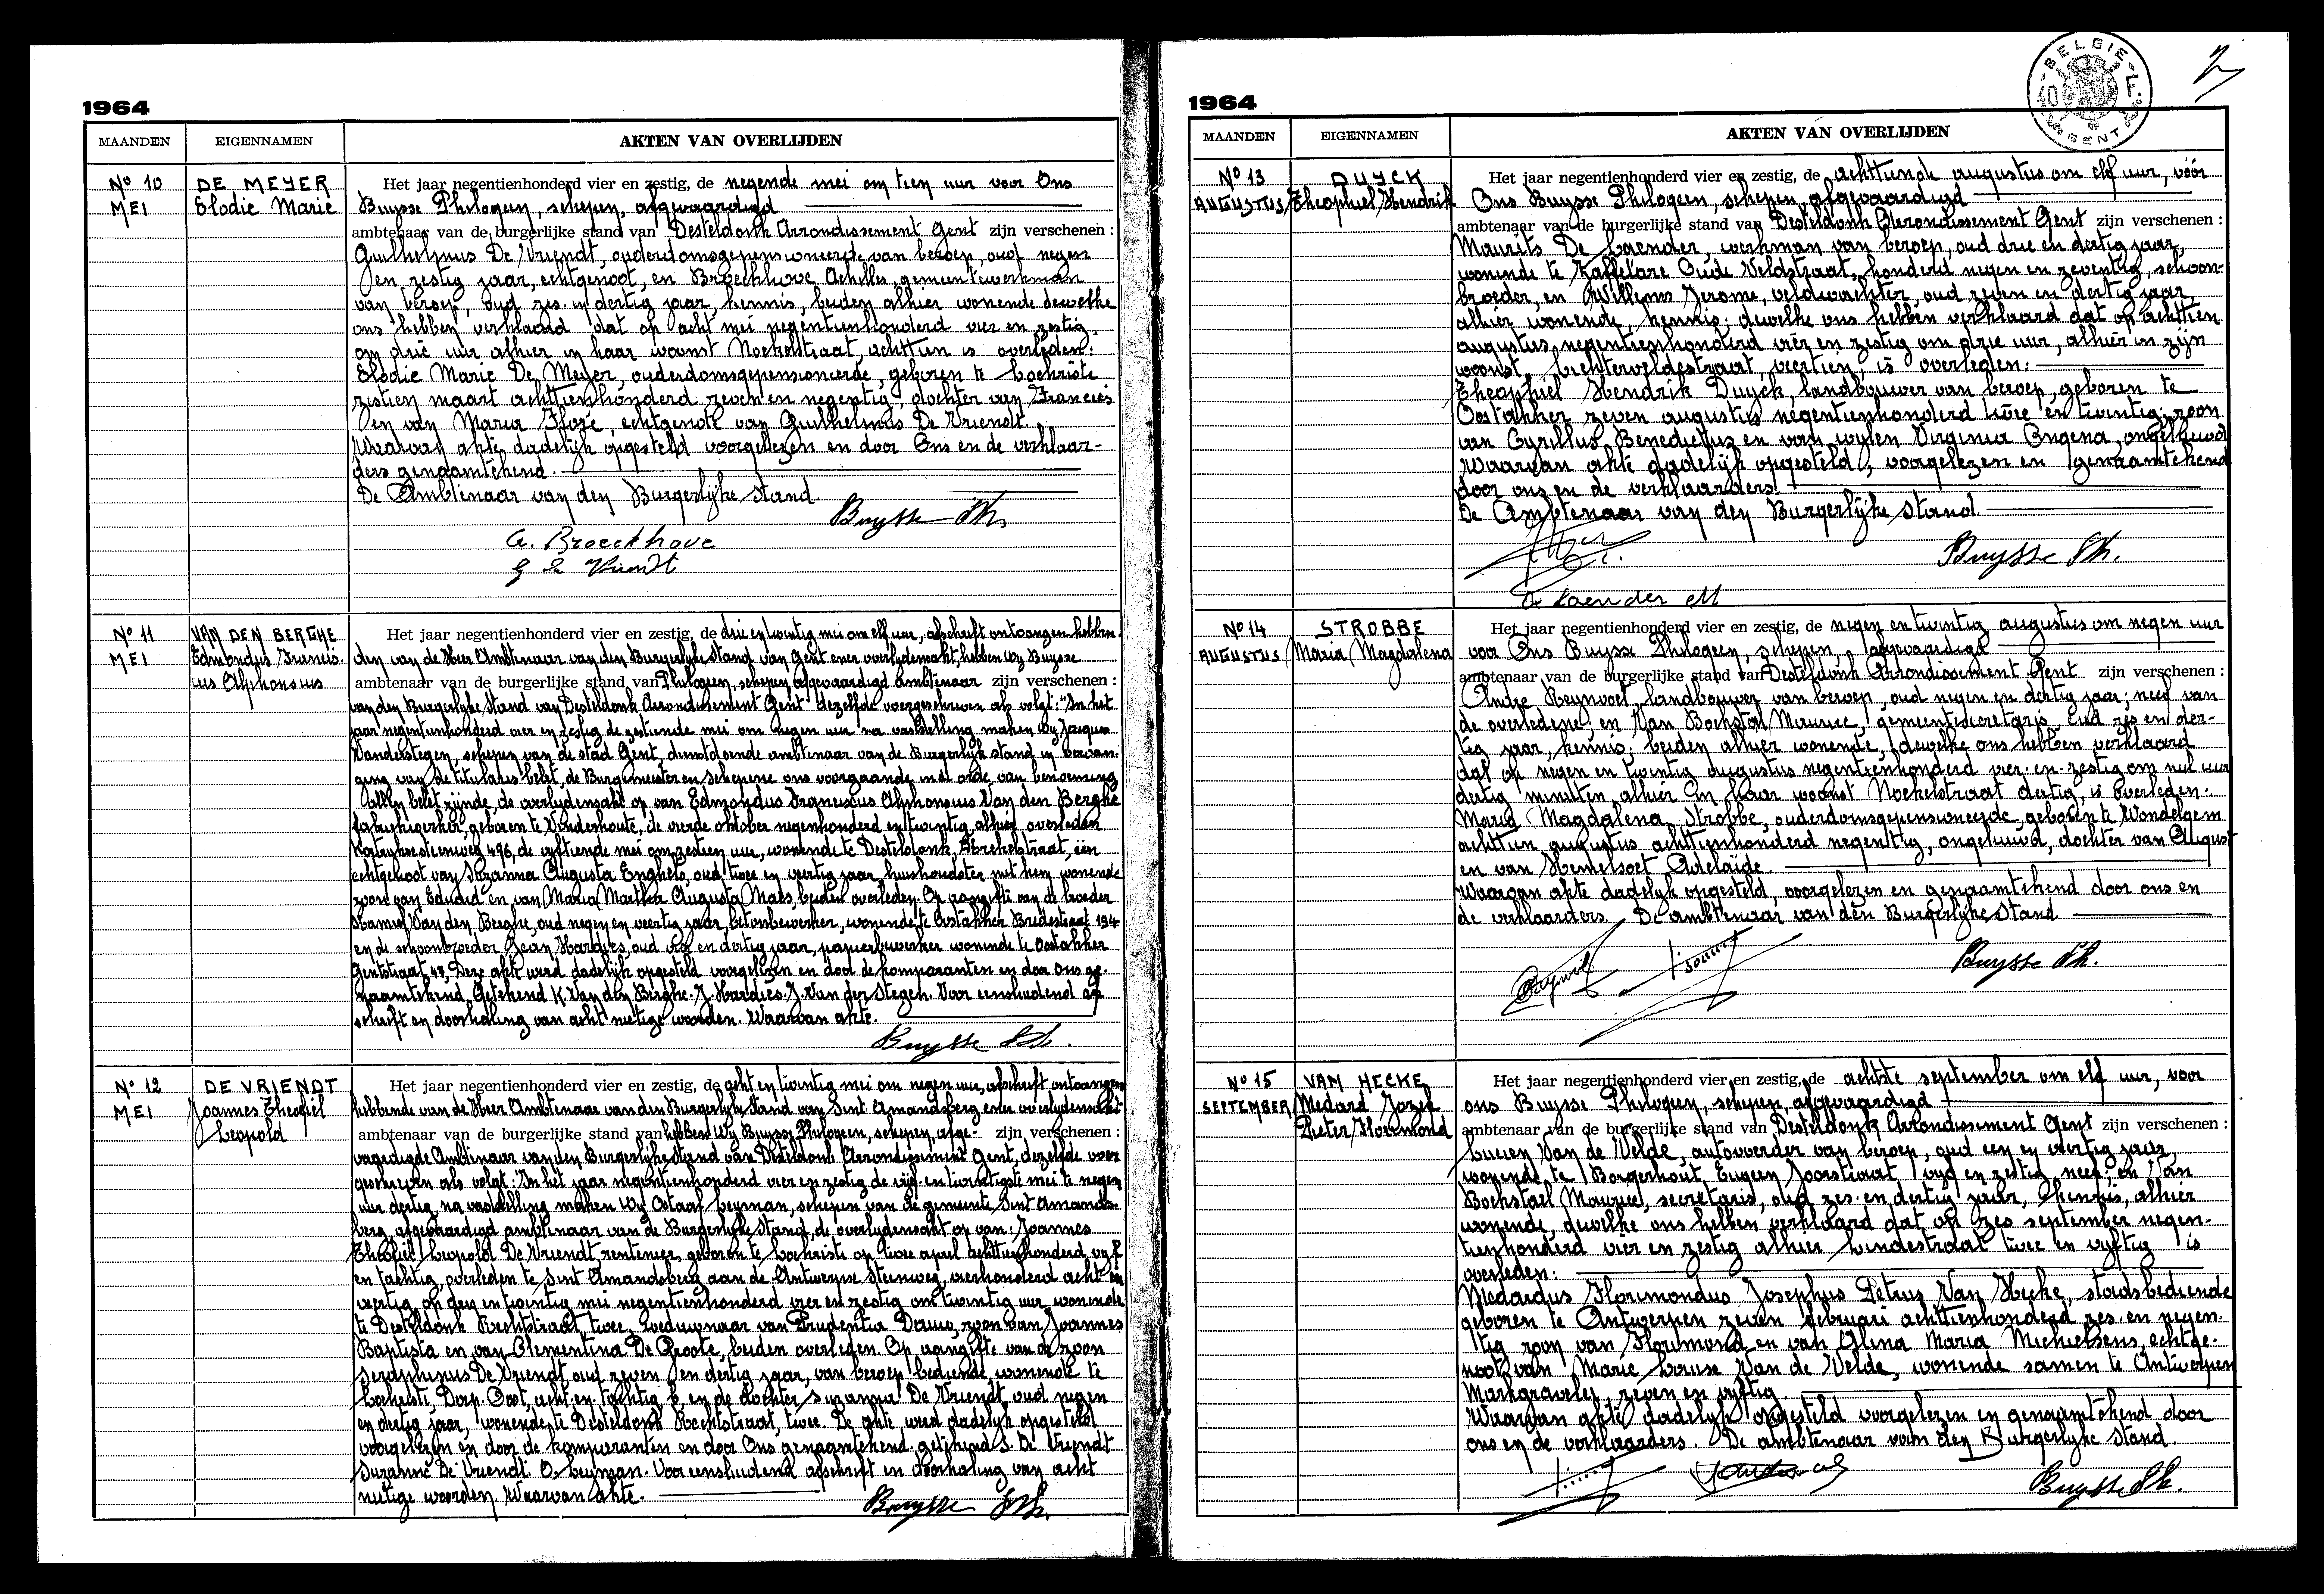 1964
MAANDEN EIGENNAMEN AKTEN VAN OVERLIJDEN
No 10
MEI
DE MEYER
Elodie Marie
Het jaar negentienhonderd vier en zestig, de negende mei om tien uur voor Ons
Buysse Philogeen, schepen, afgevaardigd
ambtenaar van de burgerlijke stand van Desteldonk Arrondissement Gent zijn verschenen :
Guilhelmus De Vriendt, ouderdomsgepensioneerde van beroep, oud negen
en zestig jaar, echtgenoot, en Broeckhove Achilles, gemeentewerkman
van beroep, oud zes en dertig jaar, kennis, beiden alhier wonende dewelke
ons hebben verklaard dat op acht mei negentienhonderd vier en zestig
om drie uur alhier in haar woonst Moekelstraat, achttien is overleden:
Elodie Marie De Meyer, ouderdomsgepensioneerde, geboren te Lochristi
zestien maart achttienhonderd zeven en negentig, dochter van Francies
en van Maria , echtgenote van Guilhelmus De Vriendt.
Waarvan akte dadelijk opgesteld voorgelezen en door Ons en de verklaar-
ders genaamtekend.
De Ambtenaar van den Burgerlijke stand.
Buysse Ph.
A. Broeckhove
G De Vriendt
No 11
MEI
VAN DEN BERGHE
Edmondus Francis-
cus Alphonsius
Het jaar negentienhonderd vier en zestig, de drie en twintig mei om elf uur, afschrift ontvangen hebben-
den van de Heer Ambtenaar van den Burgerlyke Stand van Gent ener overlydensakt, hebben Wy Buysse
ambtenaar van de burgerlijke stand van Philogeen, schepen afgevaardigd ambtenaar zijn verschenen :
van den Burgerlyke Stand van Desteldonk Arrondissement Gent dezelfde voorgeschreven als volgt: "In het
jaar negentienhonderd vier en zestig de zestiende mei om negen uur na vaststelling maken Wy Jacques
Vanderstegen, schepen van de stad Gent, dienstdoende ambtenaar van de Burgerlyk stand in vervan-
ging van de titularis belet, de Burgemeester en schepene ons voorgaande in de orde van benoeming
allen belet zijnde, de overlydensakt op van Edmondus Franciscus Alphonsius Van den Berghe
fabriekwerker, geboren te Vinderhoute, de vierde oktober negenhonderd en twintig, alhier overleden
steenweg 496, de vyftiende mei om zestien uur, wonende te Desteldonk, straat, een
echtgenoot van Augusta Enghels, oud twee en veertig jaar, huishoudster met hem wonende
zoon van Eduard en van Maria Martha Augusta Maes, beiden overleden. Op aangifte van de broeder
Kamiel Van den Berghe, oud negen en veertig jaar, betonbewerker, wonende te Oostakker Bredestraat 194
en de schoonbroeder Jean Hardies, oud en dertig jaar, papierbewerker wonende te Oostakker
Gentstraat 47. Deze akte werd dadelijk opgesteld voorgelezen en door de komparanten en door ons ge-
naamtekend. Getekend K. Van den Berghe. J. Hardies. J. Van der Stegen. Voor eensluidend af
schrift en doorhaling van acht nietige woorden. Waarvan akte.
Buysse Ph.
No 12
MEI
DE VRIENDT
Joannes Theofiel
Leopold
Het jaar negentienhonderd vier en zestig, de acht en twintig mei om negen uur, afschrift ontvangen
hebbende van de Heer Ambtenaar van den Burgerlyke Stand van Sint Amandsberg ener overlydensakt
ambtenaar van de burgerlijke stand van hebben Wy Buysse Philogeen, schepen, afge- zijn verschenen :
vaardigde Ambtenaar van den Burgerlyke Stand van Desteldonk Arrondissement Gent, dezelfde voor
geschreven als volgt: "In het jaar negentienhonderd vier en zestig de vijf en twintigste mei te negen
uur dertig, na vaststelling maken Wy Octaaf Leyman, schepen van de gemeente Sint Amands-
berg, afgevaardigd ambtenaar van de Burgerlyke Stand, de overlydensakt op van: Joannes
Theofiel Leopold De Vriendt, rentenier, geboren te Lochristi op twee april achttienhonderd vyf
en tachtig, overleden te Sint Amandsberg aan de Antwerpse steenweg, vierhonderd acht en
veertig op drie en twintig mei negentienhonderd vier en zestig om twintig uur, wonende
te Desteldonk Rechtstraat twee, weduwnaar van Prudentia , zoon van Joannes
Baptista en van Clementina De Groote, beiden overleden. Op aangifte van de zoon
Seraphinus De Vriendt, oud zeven en dertig jaar, van beroep bediende, wonende te
Lochristi, Dorp Oost, acht en tachtig, b, en de dochter Suzanna De Vriendt oud negen
en dertig jaar, wonende te Desteldonk Rechtstraat, twee. De akte werd dadelyk opgesteld
voorgelezen en door de komparanten en door Ons genaamtekend. getekend S. De Vriendt
Suzanne De Vriendt. O. Leyman. Voor eensluidend afschrift en doorhaling van acht
nietige woorden. Waarvan akte.
Buysse Ph.
BELGIE
GENT
1964
MAANDEN EIGENNAMEN AKTEN VAN OVERLIJDEN
No 13
AUGUSTUS
DUYCK
Theophiel Hendrik
Het jaar negentienhonderd vier en zestig, de achttiende augustus om elf uur, vóór
Ons Buysse Philogeen, schepen, afgevaardigd
ambtenaar van de burgerlijke stand van Desteldonk Arrondissement Gent zijn verschenen :
Maurits De Laender, werkman van beroep, oud drie en dertig jaar,
wonende te Zaffelare Oude Veldstraat, honderd negen en zeventig, schoon-
broeder, en Willems Jerome, veldwachter, oud zeven en dertig jaar
alhier wonende, kennis; dewelke ons hebben verklaard dat op achttien
augustus negentienhonderd vier en zestig om drie uur, alhier in zijn
woonst, Lichterveldestraat, veertien, is overleden:
Theophiel Hendrik Duyck, landbouwer van beroep, geboren te
Oostakker zeven augustus negentienhonderd twee en twintig, zoon
van Cyrillus Benedictus en van wylen Virginia Ongena, ongehuwd
Waarvan akte dadelijk opgesteld, voorgelezen en genaamtekend
door ons en de verklaarders.
De Ambtenaar van den Burgerlijke Stand.
Buysse Ph.
De Laender M
No 14
AUGUSTUS
STROBBE
Maria Magdalena
Het jaar negentienhonderd vier en zestig, de negen en twintig augustus om negen uur
voor Ons Buysse Philogeen, schepen, afgevaardigd
ambtenaar van de burgerlijke stand van Desteldonk Arrondissement Gent zijn verschenen :
Andre Reynvoet, landbouwer van beroep, oud negen en dertig jaar; neef van
de overledene; en Van Bockstal Maurice, gemeentesecretaris, oud zes en der-
tig jaar, kennis; beiden alhier wonende, dewelke ons hebben verklaard
dat op negen en twintig augustus negentienhonderd vier en zestig om nul uur
dertig minuten, alhier in haar woonst Moekelstraat dertig, is overleden:
Maria Magdalena Strobbe, ouderdomsgepensioneerde, geboren te Wondelgem
achttien augustus achttienhonderd negentig, ongehuwd, dochter van August
en van Hemelsoet Adelaïde.
Waarvan akte dadelyk opgesteld, voorgelezen en genaamtekend door ons en
de verklaarders. De ambtenaar van den Burgerlyke Stand
Buysse Ph.
No 15
SEPTEMBER
VAN HECKE
Medard Jozef
Pieter Florimond
Het jaar negentienhonderd vier en zestig, de achtste september om elf uur, voor
ons Buysse Philogeen, schepen, afgevaardigd
ambtenaar van de burgerlijke stand van Desteldonk Arrondissement Gent zijn verschenen :
Lucien Van de Velde, autovoerder van beroep, oud een en veertig jaar,
wonende te Borgerhout, Eugeen Joostraat vyf en zestig neef; en Van
Bockstael Maurice, secretaris, oud zes en dertig jaar, kennis, alhier
wonende, dewelke ons hebben verklaard dat op zes september negen-
tienhonderd vier en zestig alhier Lindestraat twee en vyftig is
overleden:
Medardus Florimondus Josephus Petrus Van Hecke, stadsbediende
geboren te Antwerpen zeven februari achttienhonderd zes en negen-
tig zoon van Florimond en van Elina Maria Michielsens, echtge-
noot van Marie Louise Van de Velde, wonende samen te Antwerpen
Markgravelei, zeven en vyftig.
Waarvan akte dadelyk opgesteld voorgelezen en genaamtekend door
ons en de verklaarders. De ambtenaar van den Burgerlyke Stand.
Buysse Ph.